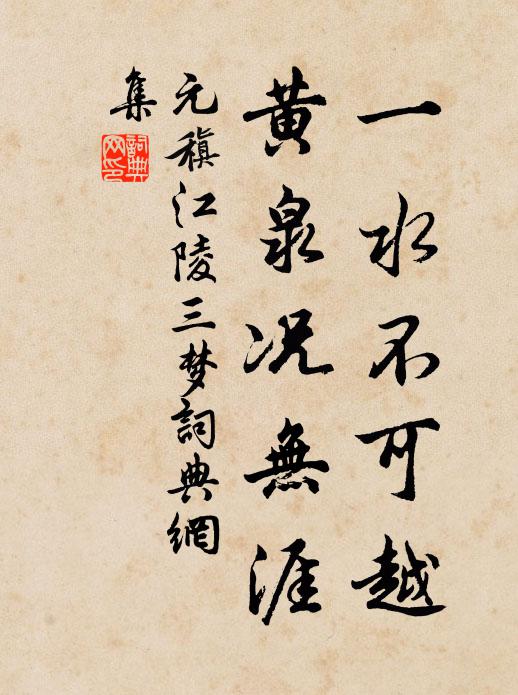 一水不可越
黄泉况無涯
元稹江陵三梦詞典網
集
詞典
网印